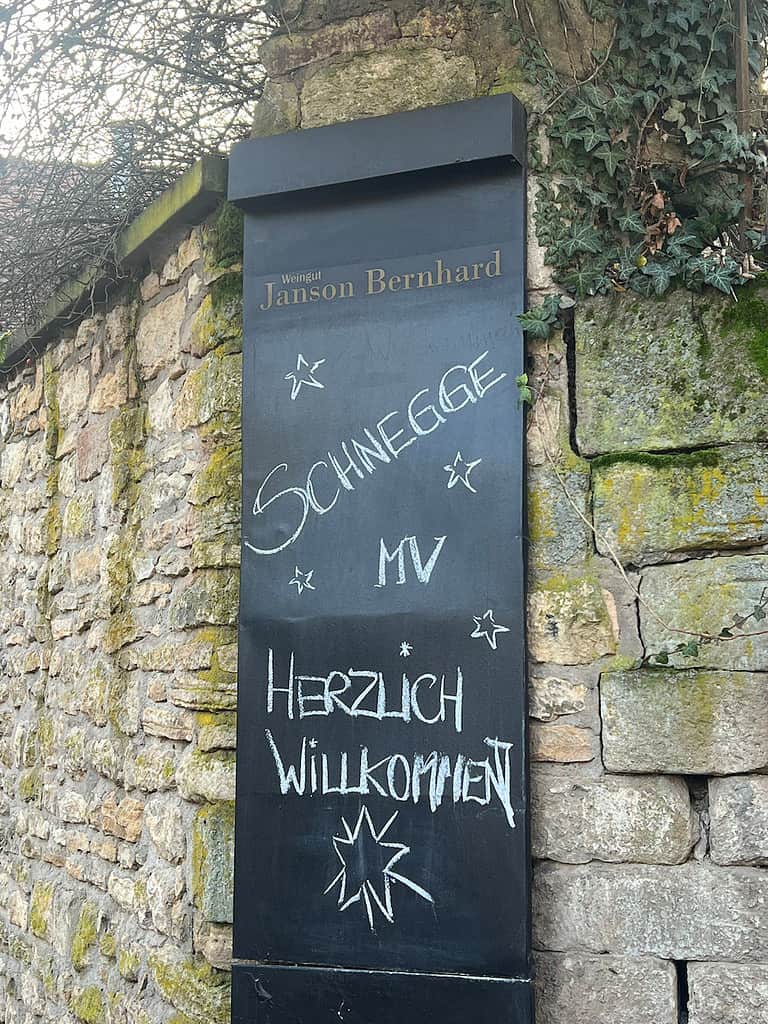 Weingut
Janson Bernhard
SCHNEGGE
MV
HERZLICH
WILLKOMMEN